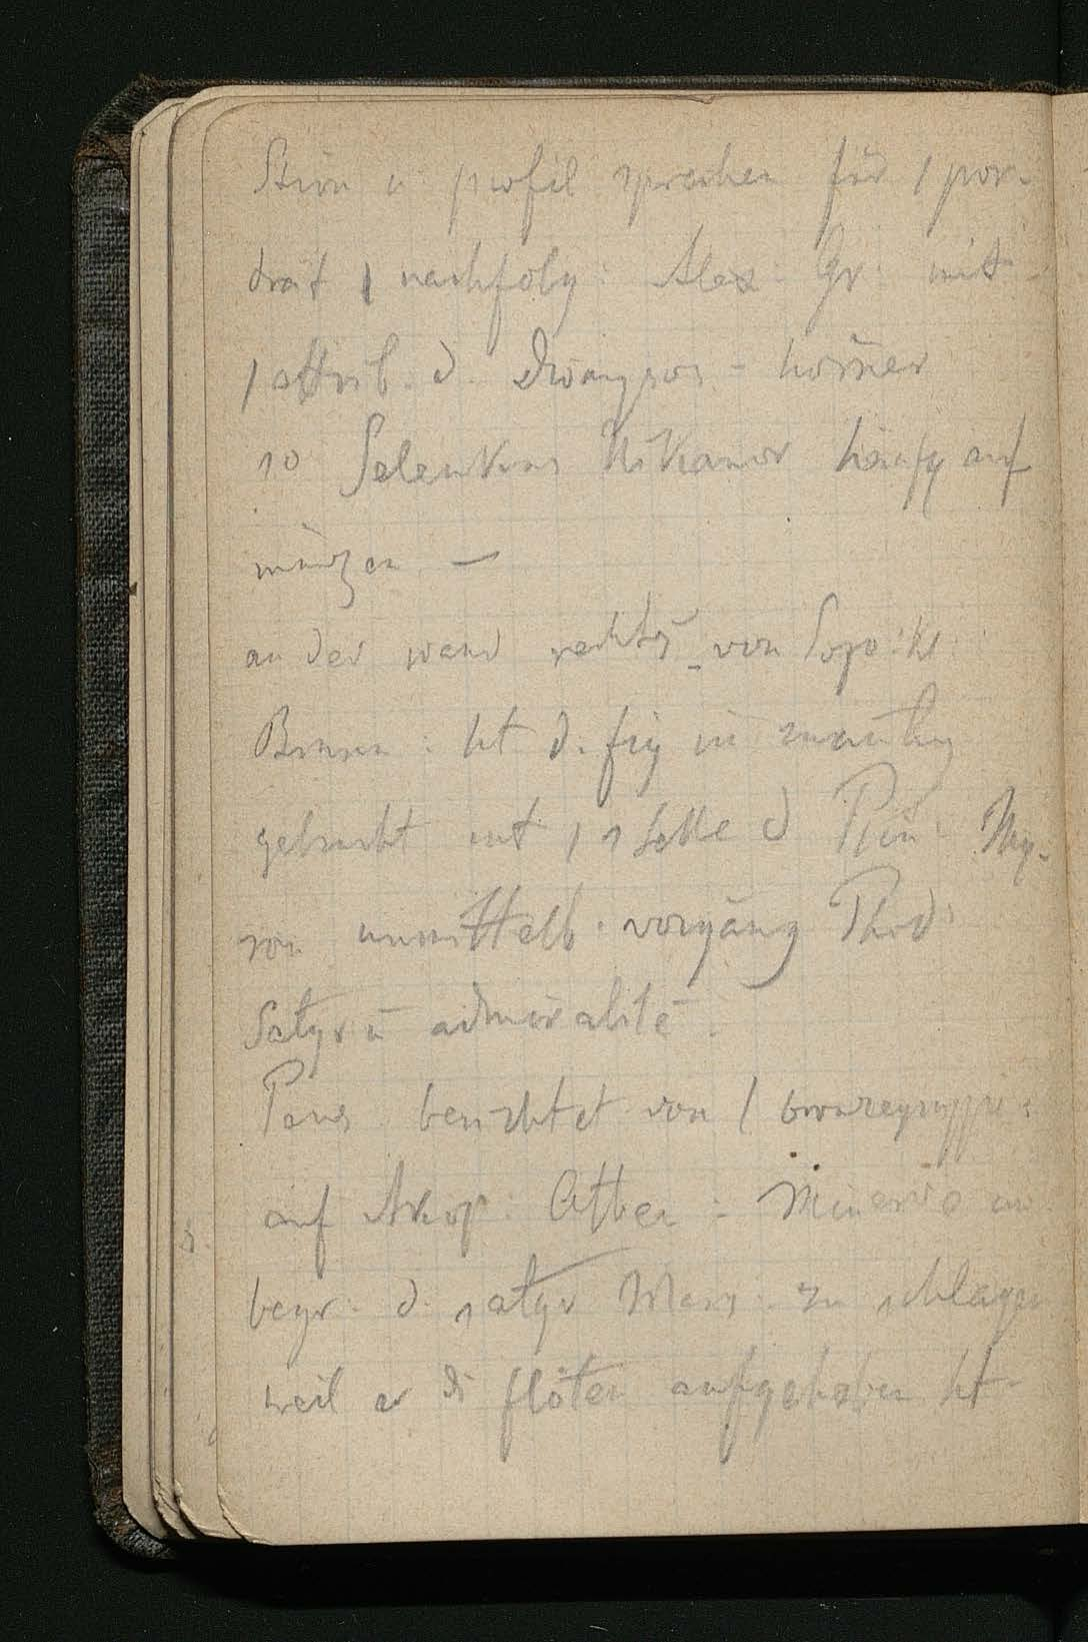 Stirn u profil sprechen für / por-
trät / nachfolg: Alex: Gr: mit
/ attrib. d. Dionysos - hörner
so Seleukus Nikanor häufg auf
münzen —
an der wand rechts von Sopokl:
Brunn: ht d. fig in
gebracht mt / stelle d Plin: My-
ron unmittelb. vorgäng Phid:
Satyr u admiralité.
Paus. berichtet von / bronzegruppe:
auf Akrop: Athen: Minerva im
begr: d. satyr Mars: zu schlagen
weil er di flöten aufgehoben ht